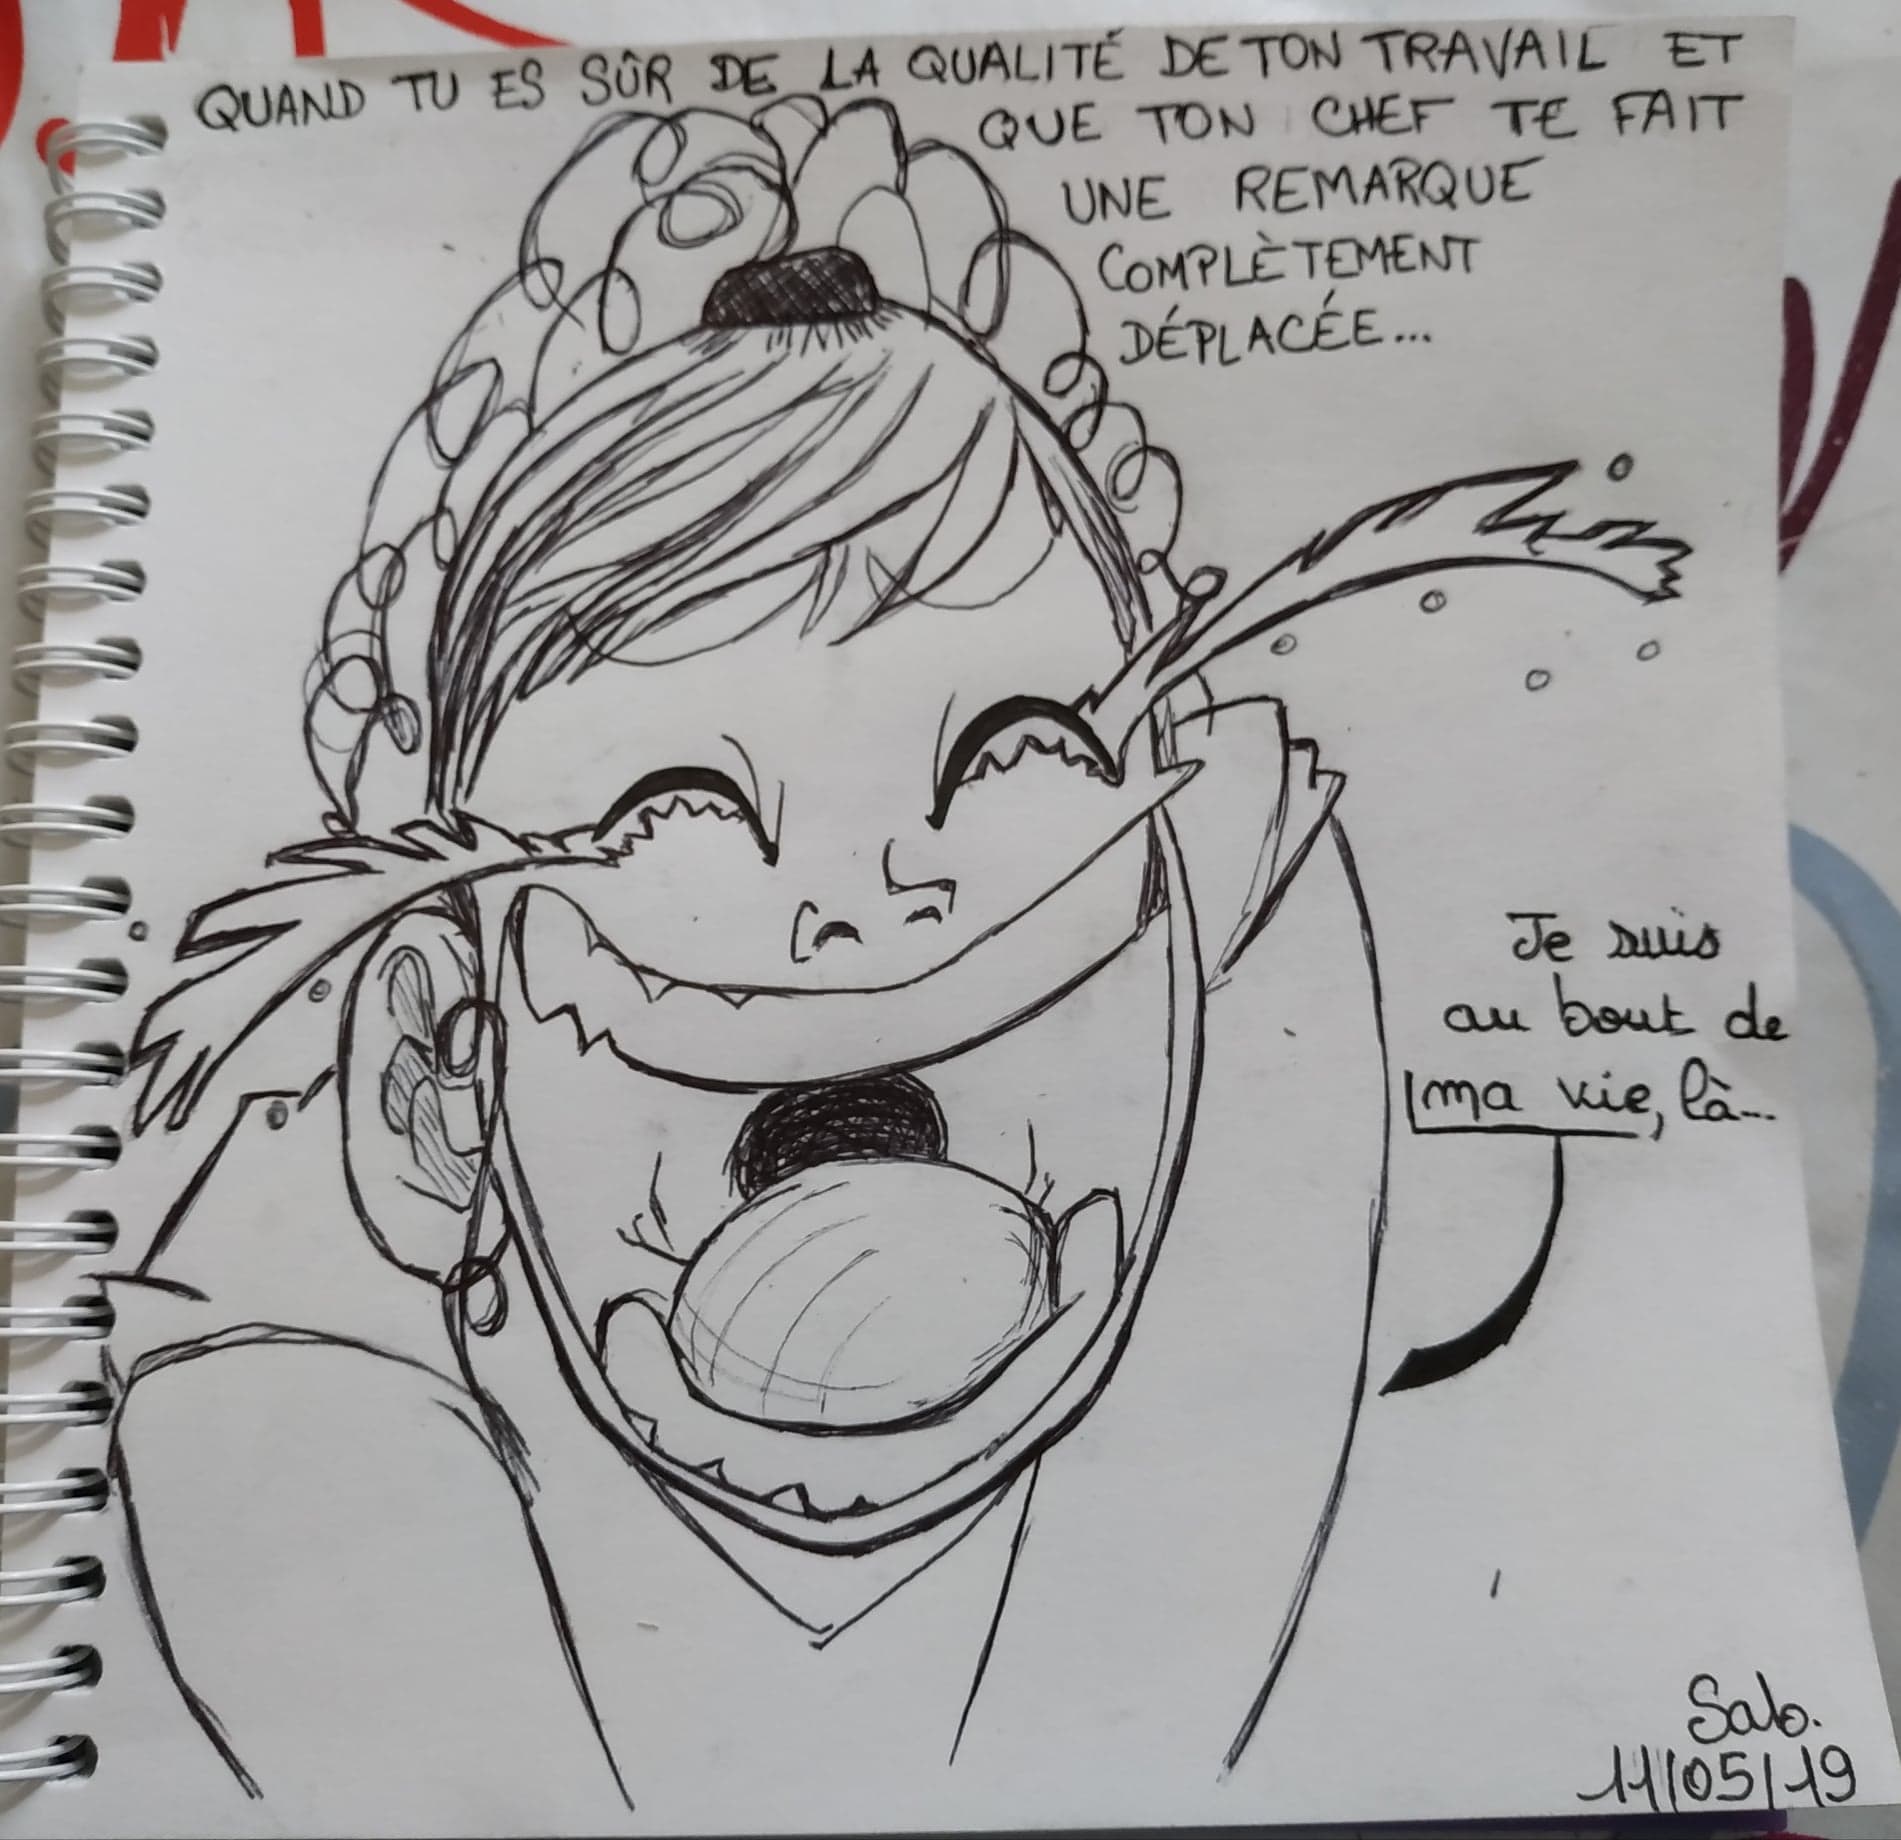 QUAND TU ES SÛR DE LA QUALITÉ DE TON TRAVAIL ET
QUE TON CHEF TE FAIT
UNE REMARQUE
COMPLÈTEMENT
DÉPLACÉE...
Je suis
au bout de
ma vie, là...
Sab.
11/05/19